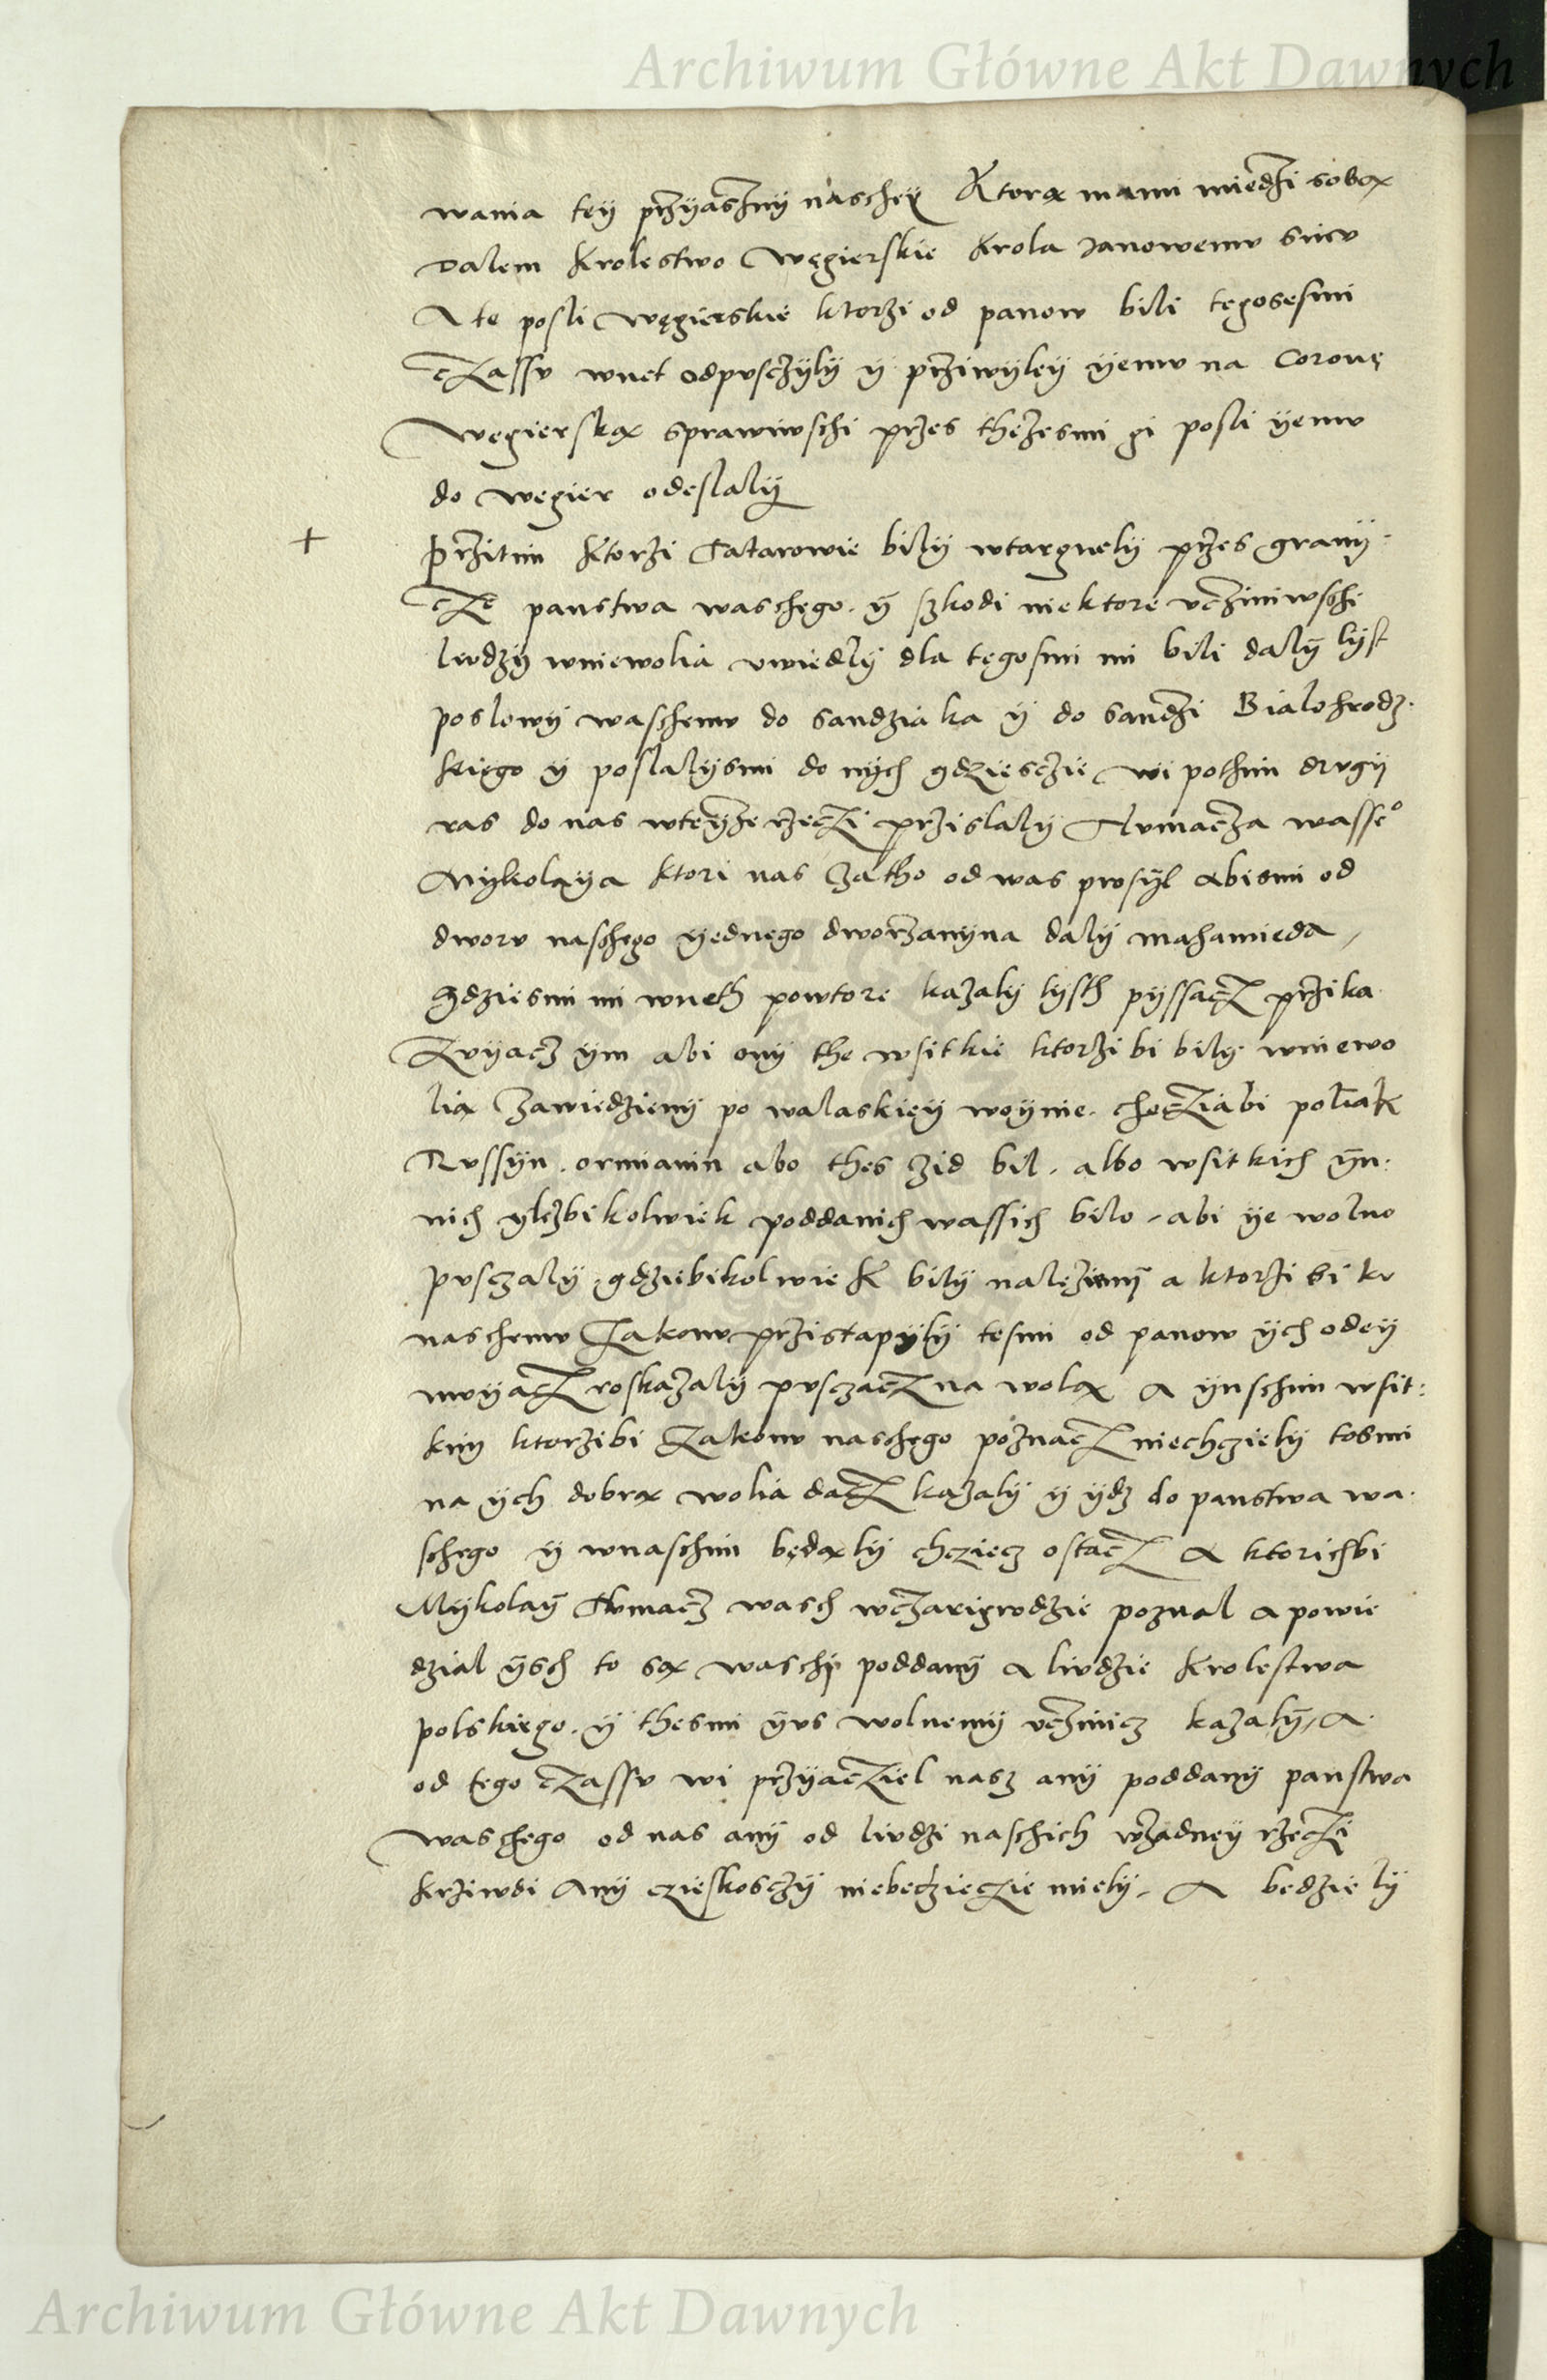 Archiwum Główne Akt Dawnych
wania tey przyaszny naschey Ktorą mami miedzi sobą
dalem Krolestwo Węgierskie Krola Janowemu sinu
A te posli Węgierskie ktorzi od panow bili tegosesmi
czassu wnet odpusczyly y priwyley yemu na Coronę
Węgierską sprawiwschi przes thezesmi gi posli yemu
do węgier odeslaly
+ Przitim Ktorzi Tatarowie bily wtargnely przes grany:
cze panstwa waschego. y szkodi niektore uczniwschi
ludzy wniewolia uwiedly dla tegosmi mi bili daly lyst
poslowy waschemu do sandziaka y do sandzi Bialohrodz.
kiego y poslalysmi do nych gdziesczie wi pothim drugy
ras do nas wteyze rzeczi przislaly Tlumacza wassego
Mykolaya ktori nas zatho od was prosyl abismi od
dworu naschego yednego dworzanyna daly mahamieda,
gdziesmi mi wneth powtore kazaly lysth pyssacz przika
zuyacz ym abi ony the wsitkie ktorzi bi bily wniewo
lią zawiedzieny po walaskiey woynie. chocziabi poliak
Russyn. ormianin abo thes zid bil. albo wsitkich yn:
nich ylezbikolwiek poddanich wassich bilo, abi ye wolno
pusczaly gdziebikolwiek bily nalezieny a ktorzi bi ku
naschemu Zakonu przistapyly tesmi od panow ych odey
muyacz roskazaly pusczacz na wolą A ynschim wsit:
kim ktorzibi Zakonu naschego poznacz niechcziely tosmi
na ych dobrą wolia dacz kazaly y ydz do panstwa wa.
schego y wnaschim będąly chcziecz ostacz A ktorichbi
Mykolay Tlumacz wasch wczarigrodzie poznal a powie
dzial ysch to są waschi poddany a ludzie Krolestwa
polskiego. y thesmi yus wolnemy uczinicz kazaly, A.
od tego czassu wi przyacziel nasz any poddany panstwa
waschego od nas any od ludzi naschich wzadney rzeczi
Krziwdi Any czieskosczy niebedzieczie miely. A bedziely
Archiwum Główne Akt Dawnych